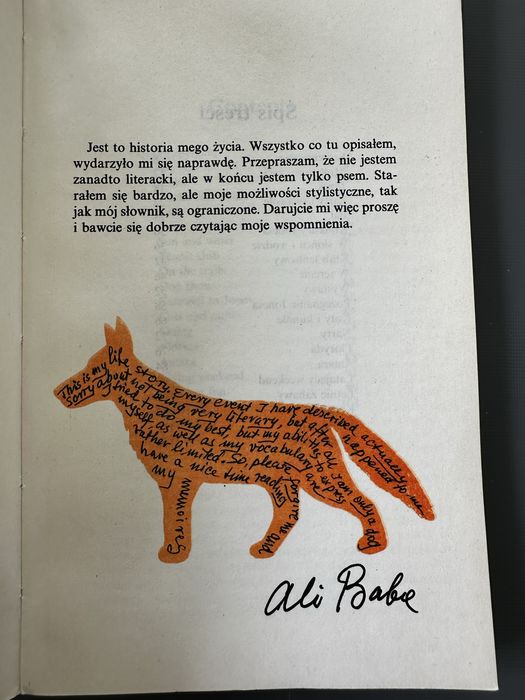 Jest to historia mego życia. Wszystko co tu opisałem,
wydarzyło mi się naprawdę. Przepraszam, że nie jestem
zanadto literacki, ale w końcu jestem tylko psem. Sta-
rałem się bardzo, ale moje możliwości stylistyczne, tak
jak mój słownik, są ograniczone. Darujcie mi więc proszę
i bawcie się dobrze czytając moje wspomnienia.
This is my life story. Every event I have described actually happened to me.
Sorry about not being very literary, but after all I am only a dog
I tried to do my best, but my abilities to express
myself as well as my vocabulary are
rather limited. So, please forgive me and
have a nice time reading
my memoires
Ali Baba